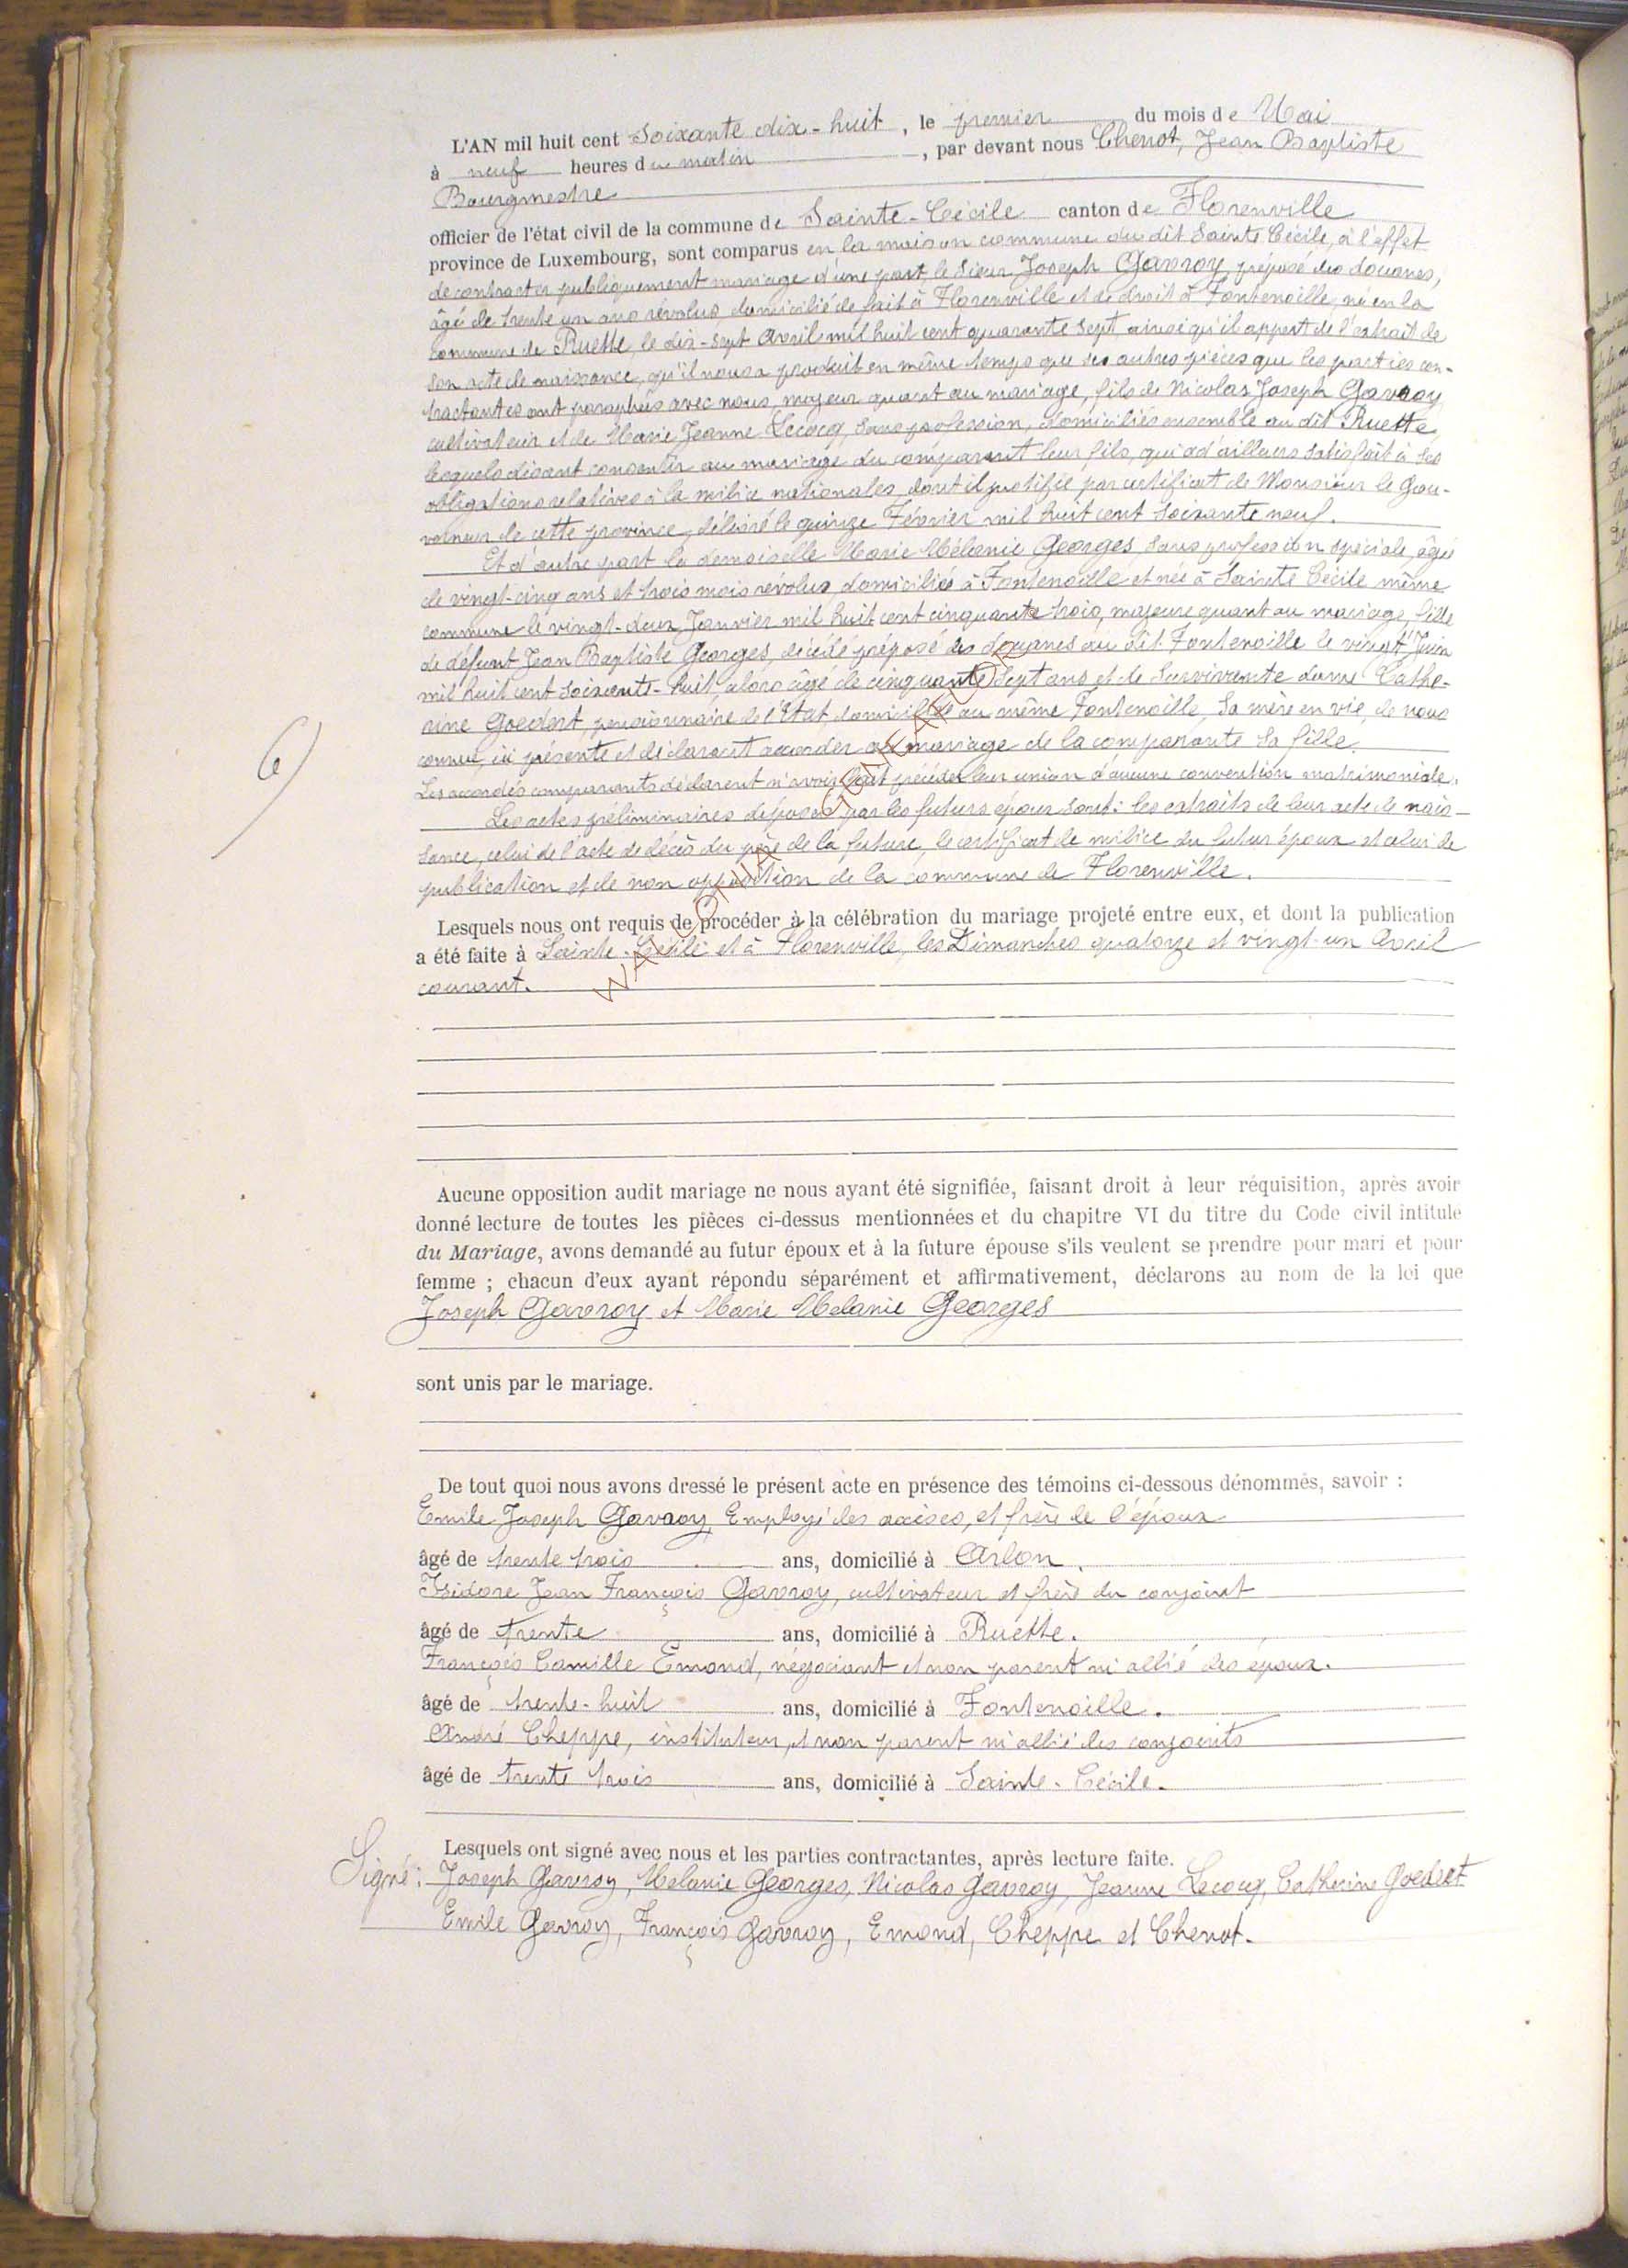 L'AN mil huit cent Soixante dix-huit, le premier du mois de Mai
à neuf heures du matin, par devant nous Chenot, Jean Baptiste
Bourgmestre
officier de l'état civil de la commune de Sainte-Cécile canton de Florenville
province de Luxembourg, sont comparus en la maison commune du dit Sainte Cécile, à l'effet
de contracter publiquement mariage d'une part le Sieur Joseph Gavroy, préposé des douanes,
âgé de trente un ans révolus domicilié de fait à Florenville et de droit à Fontenoille, né en la
commune de Ruette, le dix-sept Avril mil huit cent quarante sept, ainsi qu'il appert de l'extrait de
son acte de naissance, qu'il nous a produit en même temps que les autres pièces que les parties con-
tractantes ont paraphées avec nous, majeur quant au mariage, fils de Nicolas Joseph Gavroy
cultivateur et de Marie Jeanne Lecocq, sans profession, domiciliés ensemble au dit Ruette
lesquels disent consentir au mariage du comparant leur fils, qui a d'ailleurs satisfait à ses
obligations relatives à la milice nationales dont il justifie par certificat de Monsieur le Gou-
verneur de cette province, délivré le quinze Février mil huit cent soixante neuf.
Et d'autre part la demoiselle Marie Mélanie Georges, sans profession spéciale, âgée
de vingt-cinq ans et trois mois révolus, domiciliée à Fontenoille et née à Sainte Cécile même
commune le vingt-deux Janvier mil huit cent cinquante trois, majeure quant au mariage, fille
de défunt Jean Baptiste Georges, décédé préposé des douanes au dit Fontenoille le vingt Juin
mil huit cent soixante-huit, alors âgé de cinquante sept ans et de Survivante dame Cathe-
rine Goedert, pensionnaire de l'Etat, domiciliée au même Fontenoille, Sa mère en vie, de nous
connue, ici présente et déclarant accorder au mariage de la comparante sa fille.
Les accordés comparants déclarent n'avoir fait précéder leur union d'aucune convention matrimoniale.
Les actes préliminaires déposés par les futurs époux sont: les extraits de leur acte de nais-
sance, celui de l'acte de décès du père de la future, le certificat de milice du futur époux et celui de
publication et de non opposition de la commune de Florenville.
Lesquels nous ont requis de procéder à la célébration du mariage projeté entre eux, et dont la publication
a été faite à Sainte-Cécile et à Florenville, les Dimanches quatorze et vingt-un Avril
courant.
Aucune opposition audit mariage ne nous ayant été signifiée, faisant droit à leur réquisition, après avoir
donné lecture de toutes les pièces ci-dessus mentionnées et du chapitre VI du titre du Code civil intitulé
du Mariage, avons demandé au futur époux et à la future épouse s'ils veulent se prendre pour mari et pour
femme ; chacun d'eux ayant répondu séparément et affirmativement, déclarons au nom de la loi que
Joseph Gavroy et Marie Melanie Georges
sont unis par le mariage.
De tout quoi nous avons dressé le présent acte en présence des témoins ci-dessous dénommés, savoir :
Emile Joseph Gavroy, Employé des accises, et frère de l'époux
âgé de trente trois ans, domicilié à Arlon.
Isidore Jean François Gavroy, cultivateur et frère du conjoint
âgé de trente ans, domicilié à Ruette.
François Camille Emond, négociant et non parent ni allié des époux.
âgé de trente-huit ans, domicilié à Fontenoille.
André Cheppe, instituteur, et non parent ni allié des conjoints
âgé de trente trois ans, domicilié à Sainte-Cécile.
Lesquels ont signé avec nous et les parties contractantes, après lecture faite.
Signé: Joseph Gavroy, Melanie Georges, Nicolas Gavroy, Jeanne Lecocq, Catherine Goedert
Emile Gavroy, François Gavroy, Emond, Cheppe et Chenot.
6)